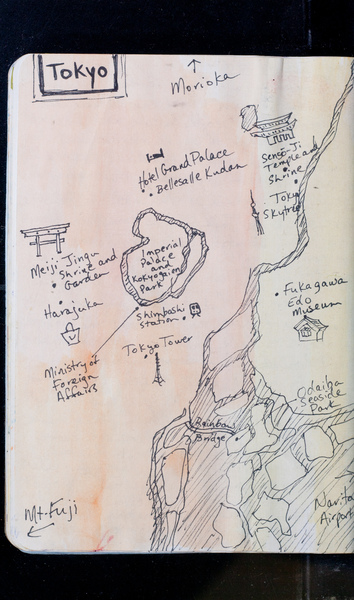 Tokyo
Morioka
Hotel Grand Palace
Bellesalle Kudan
Senso-Ji
Temple and
Shrine
Tokyo
Skytree
Meiji Jingu
Shrine and
Garden
Imperial
Palace
and
Kokyogaien
Park
Harajuka
Shimbashi
Station
Fukagawa
Edo
Museum
Ministry of
Foreign
Affairs
Tokyo Tower
Odaiba
Seaside
Park
Rainbow
Bridge
Mt. Fuji
Narita
Airport